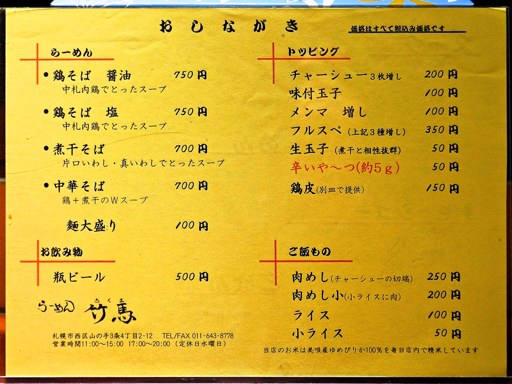 おしながき
価格はすべて税込み価格です
らーめん
鶏そば 醤油 750円
中札内鶏でとったスープ
鶏そば 塩 750円
中札内鶏でとったスープ
煮干そば 700円
片口いわし・真いわしでとったスープ
中華そば 700円
鶏+煮干のWスープ
麺大盛り 100円
お飲み物
瓶ビール 500円
らーめん 竹馬
ちくま
札幌市西区山の手3条4丁目2-12 TEL/FAX 011-643-8778
営業時間11:00~15:00 17:00~20:00 (定休日水曜日)
トッピング
チャーシュー3枚増し 200円
味付玉子 100円
メンマ 増し 100円
フルスペ(上記3種増し) 350円
生玉子(煮干と相性抜群) 50円
辛いや~つ(約5g) 50円
鶏皮(別皿で提供) 150円
ご飯もの
肉めし(チャーシューの切端) 250円
肉めし小(小ライスに肉) 200円
ライス 100円
小ライス 50円
当店のお米は美唄産ゆめぴりか100%を毎日店内で精米しています